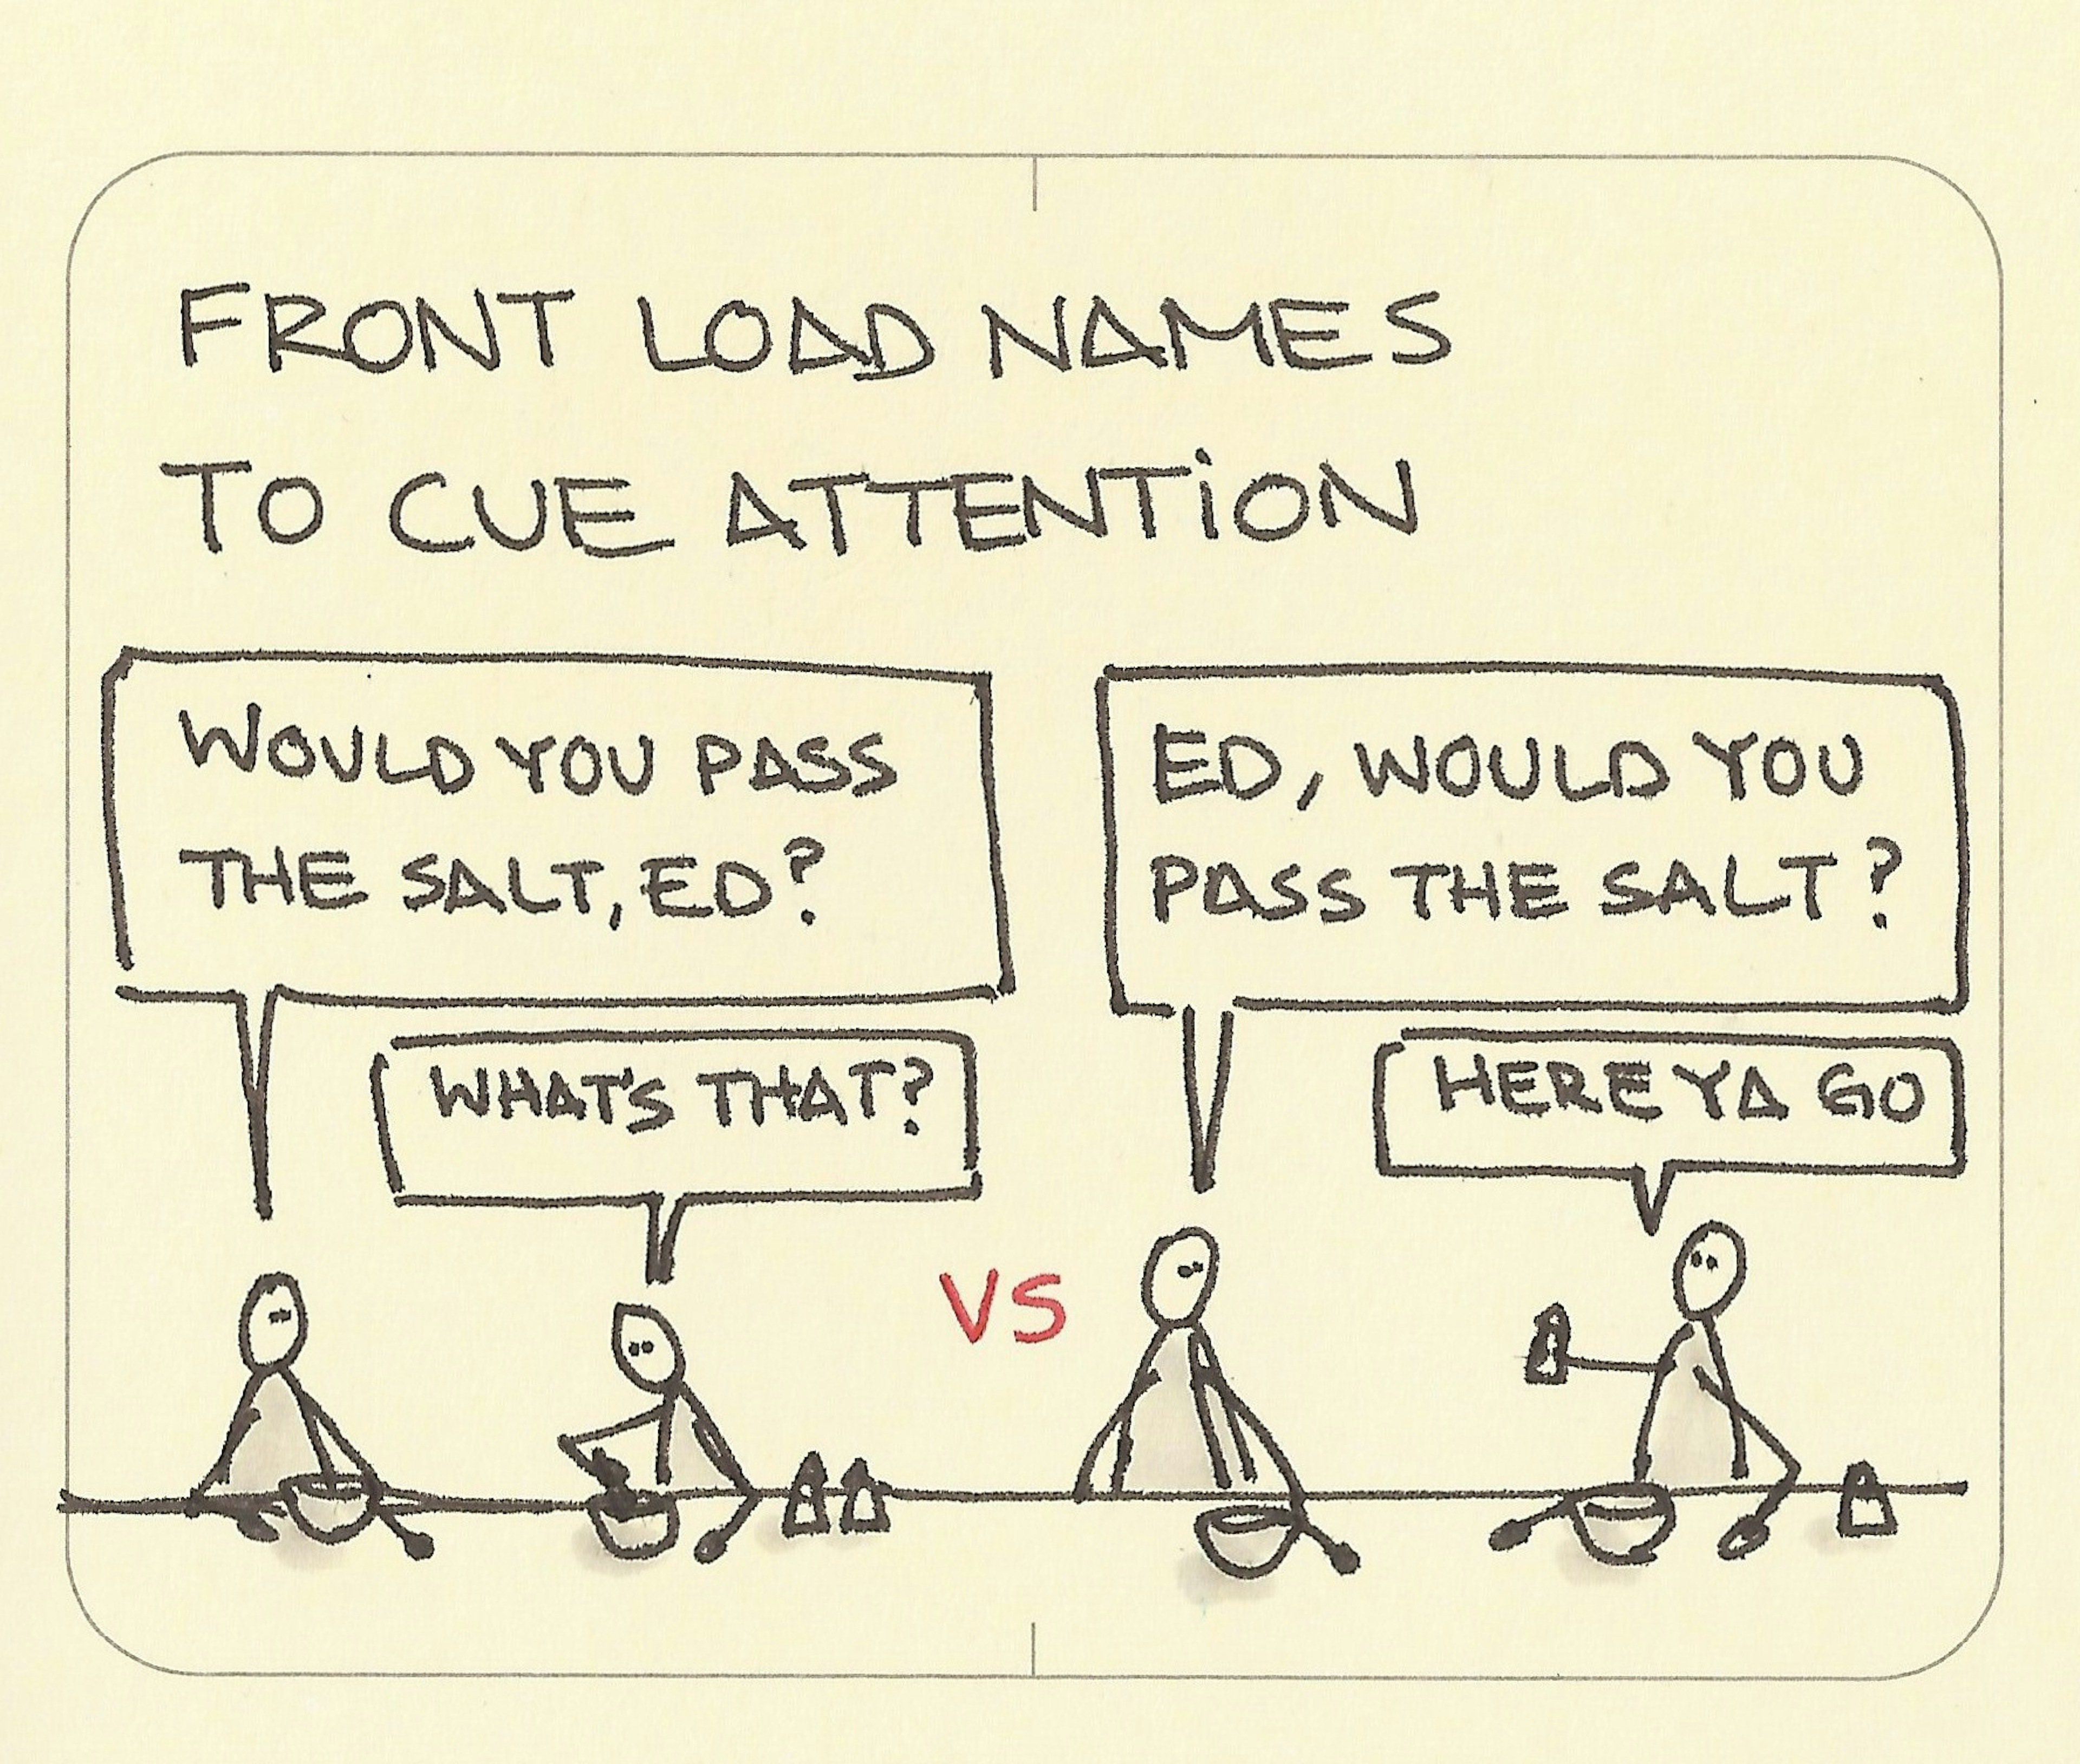 FRONT LOAD NAMES
TO CUE ATTENTION
WOULD YOU PASS
THE SALT, ED?
WHAT'S THAT?
VS
ED, WOULD YOU
PASS THE SALT?
HERE YA GO